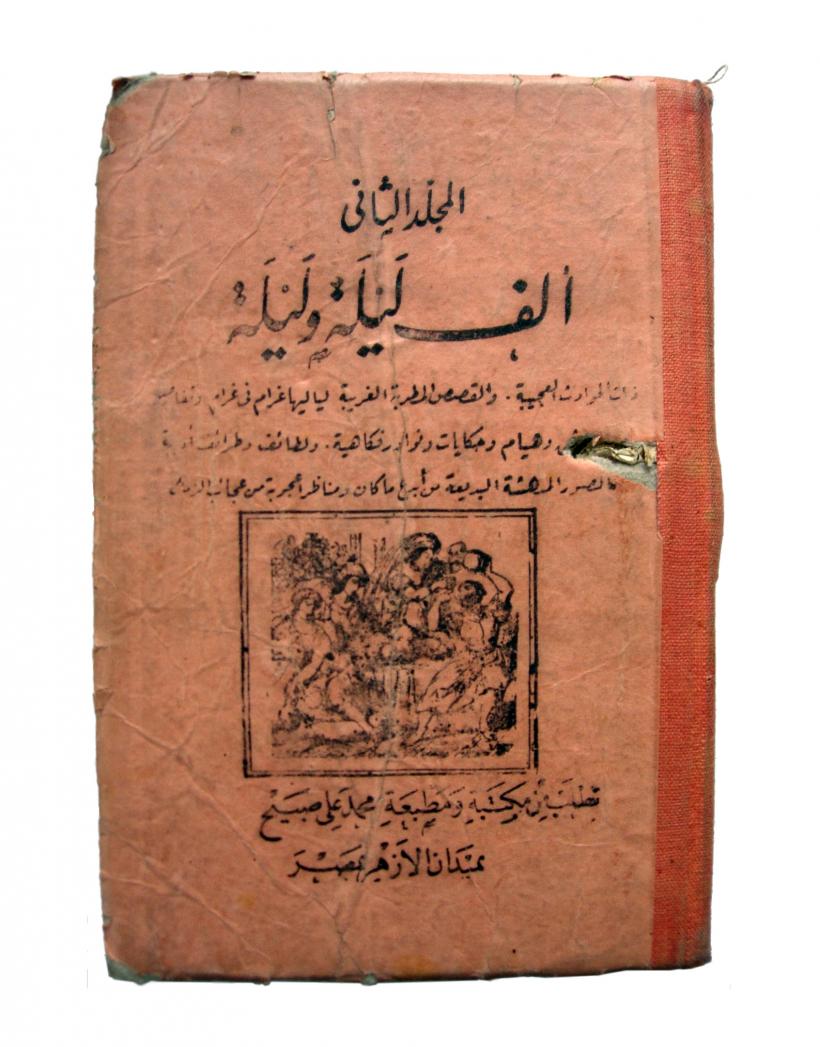 المجلد الثانى
ألف لَيْلَة ولَيْلَة
ذات الحوادث العجيبة . والقصص المطربة الغريبة لياليها غرام فى غرام وتفاصيل
وهيام وحكايات ونوادر فكاهية . ولطائف وطرائف أدبية
بالصور المدهشة البديعة من أبدع ما كان ومناظر أعجوبة من عجائب الزمان
تطلب من مكتبة ومطبعة محمد على صبيح
بميدان الأزهر بمصر